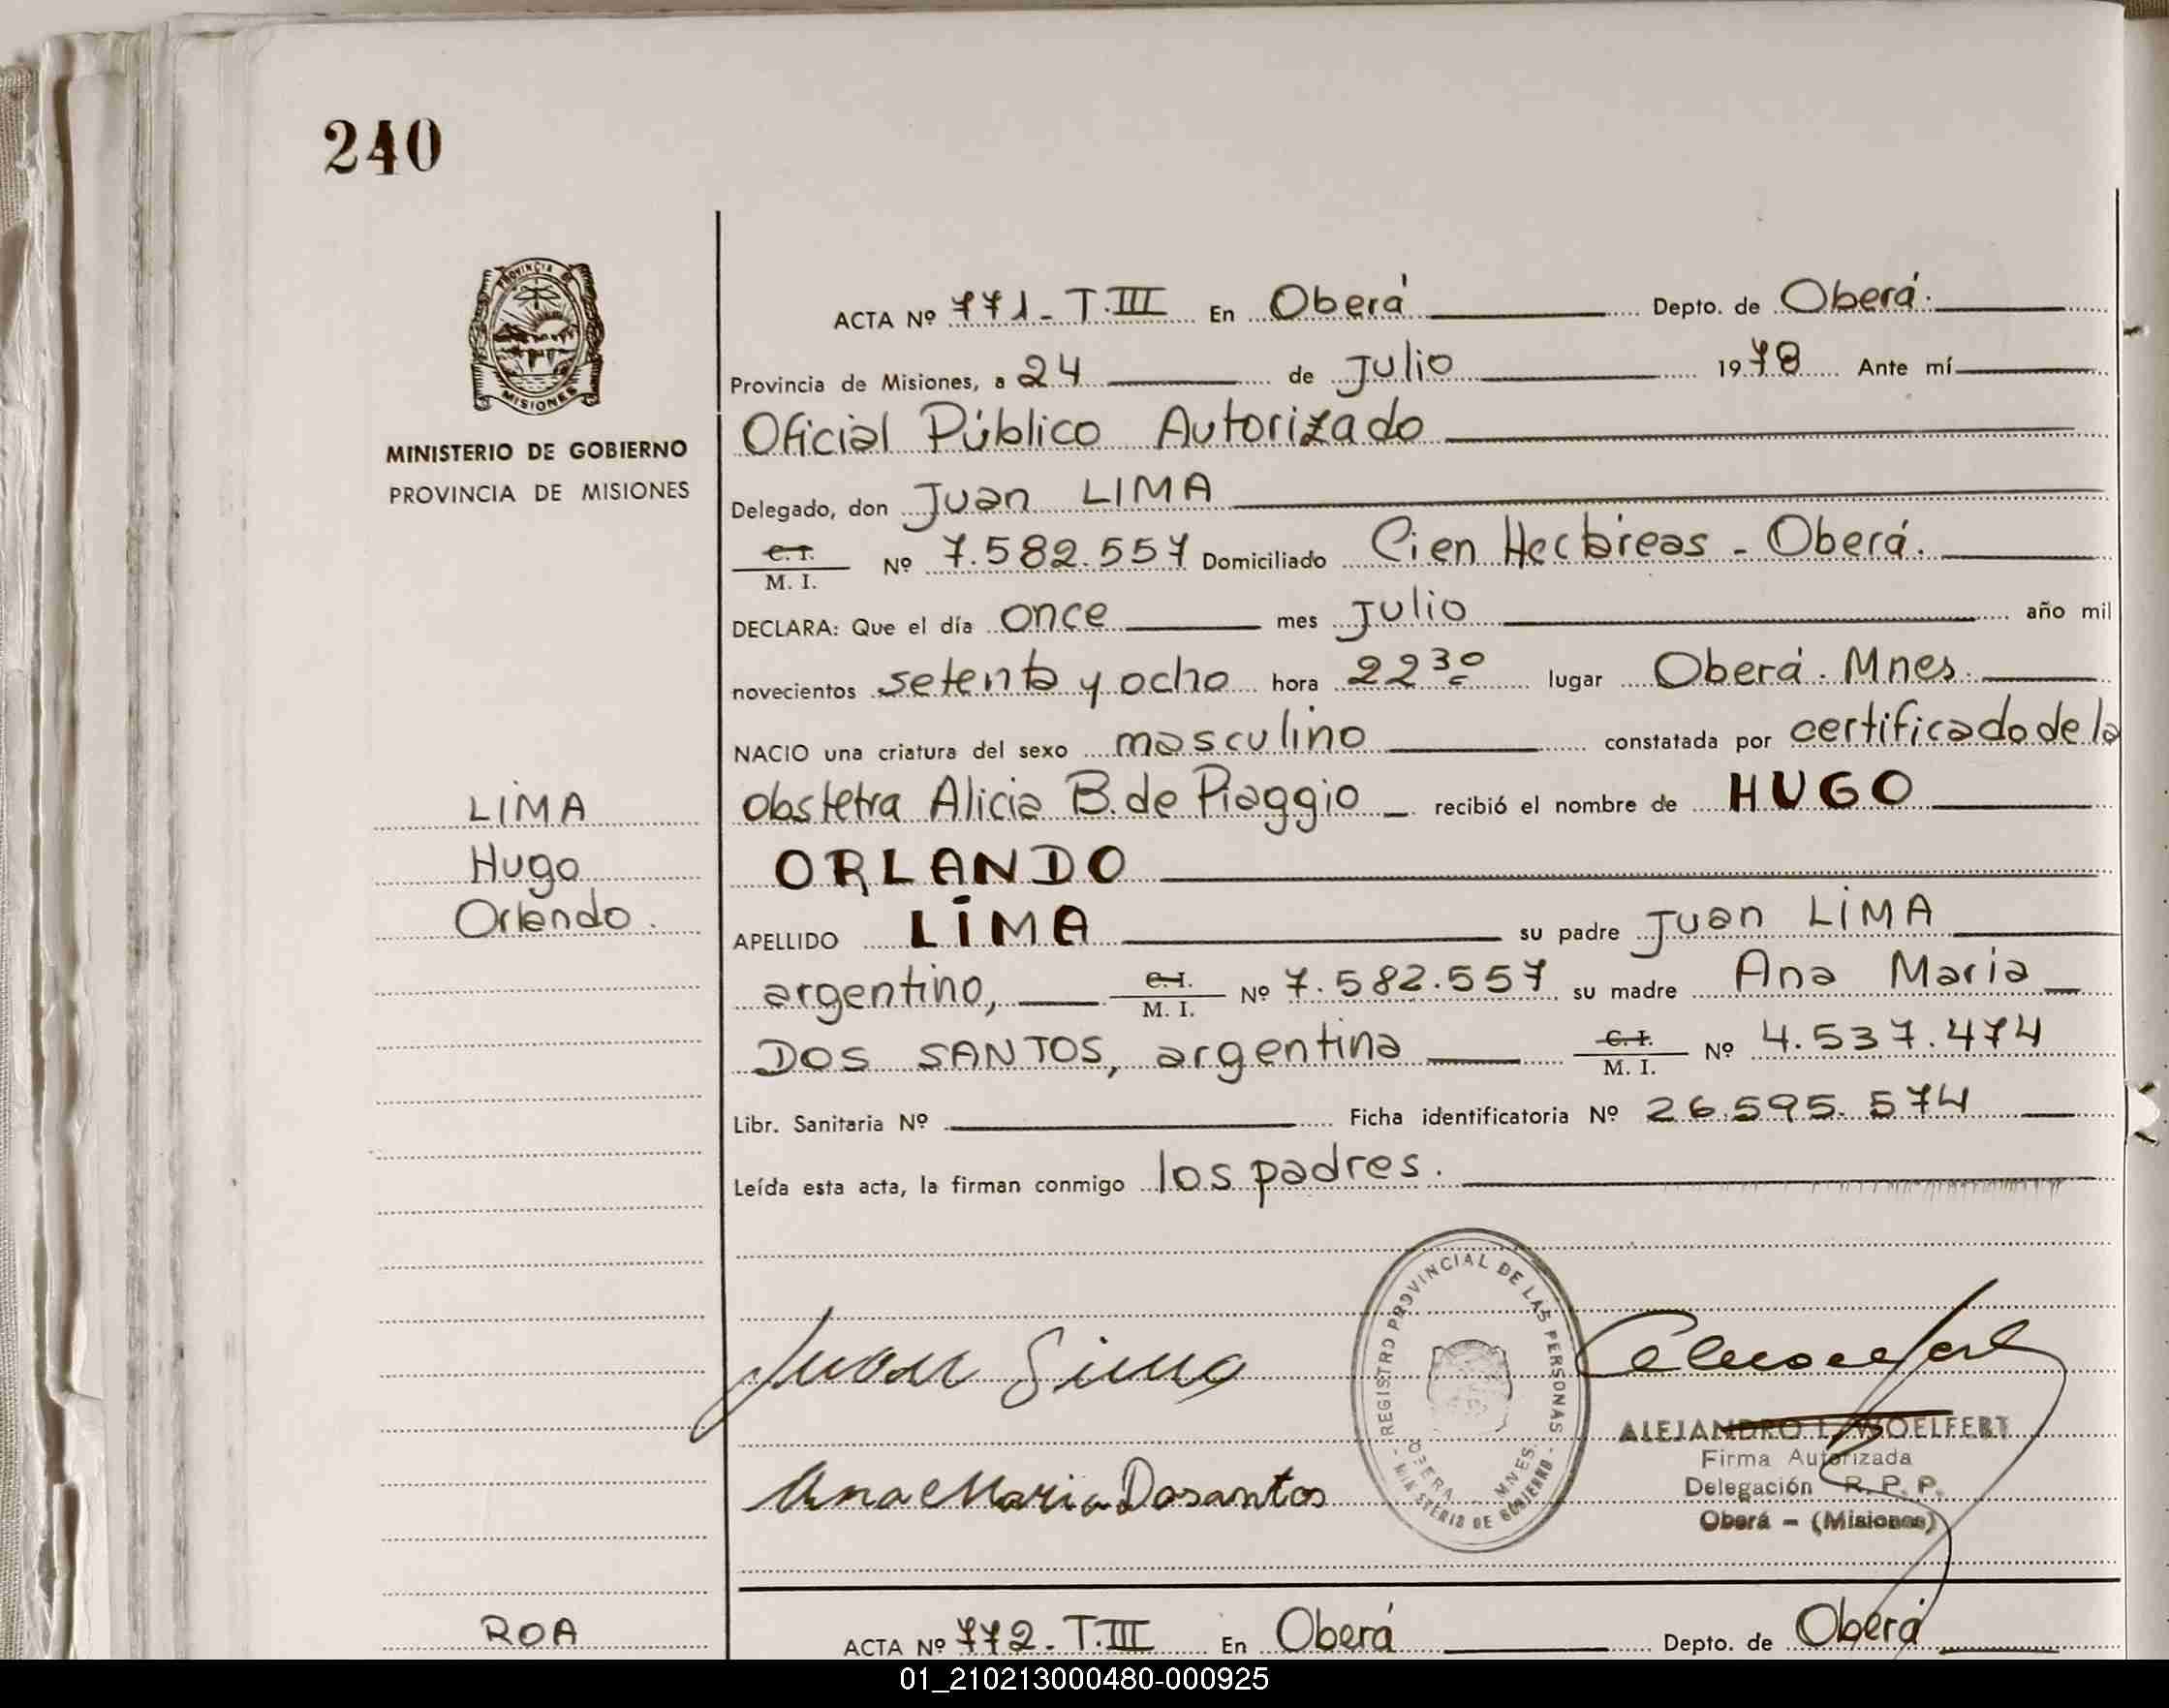 240
PROVINCIA DE
MISIONES
MINISTERIO DE GOBIERNO
PROVINCIA DE MISIONES
ACTA Nº 771 - T.III En Oberá Depto. de Oberá.
Provincia de Misiones, a 24 de Julio 1978 Ante mí
Oficial Público Autorizado
Delegado, don Juan LIMA
C. I.
M. I. Nº 7.582.557 Domiciliado Cien Hectáreas - Oberá.
DECLARA: Que el día once mes Julio año mil
novecientos setenta y ocho hora 22 30 lugar Oberá. Mnes.
NACIO una criatura del sexo masculino constatada por certificado de la
obstetra Alicia B. de Piaggio recibió el nombre de HUGO
ORLANDO
APELLIDO LIMA su padre Juan LIMA
argentino, C. I.
M. I. Nº 7.582.557 su madre Ana Maria
DOS SANTOS, argentina C. I.
M. I. Nº 4.537.474
Libr. Sanitaria Nº Ficha identificatoria Nº 26.595.574
Leída esta acta, la firman conmigo los padres.
LIMA
Hugo
Orlando.
Juan Lima
Ana Maria Dosantos
REGISTRO PROVINCIAL DE LAS PERSONAS
OBERA - MNES.
MINISTERIO DE GOBIERNO
ALEJANDRO L. WOELFERT
Firma Autorizada
Delegación R. P. P.
Oberá - (Misiones)
ROA
ACTA Nº 772 - T.III En Oberá Depto. de Oberá
01_210213000480-000925